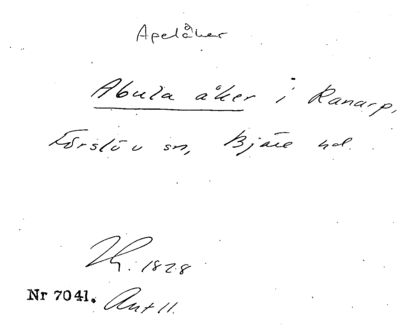 Apelåker
Abula åker i Ranarp,
Förslöv sn, Bjäre hd.
1828
Nr 7041. Ant 11.